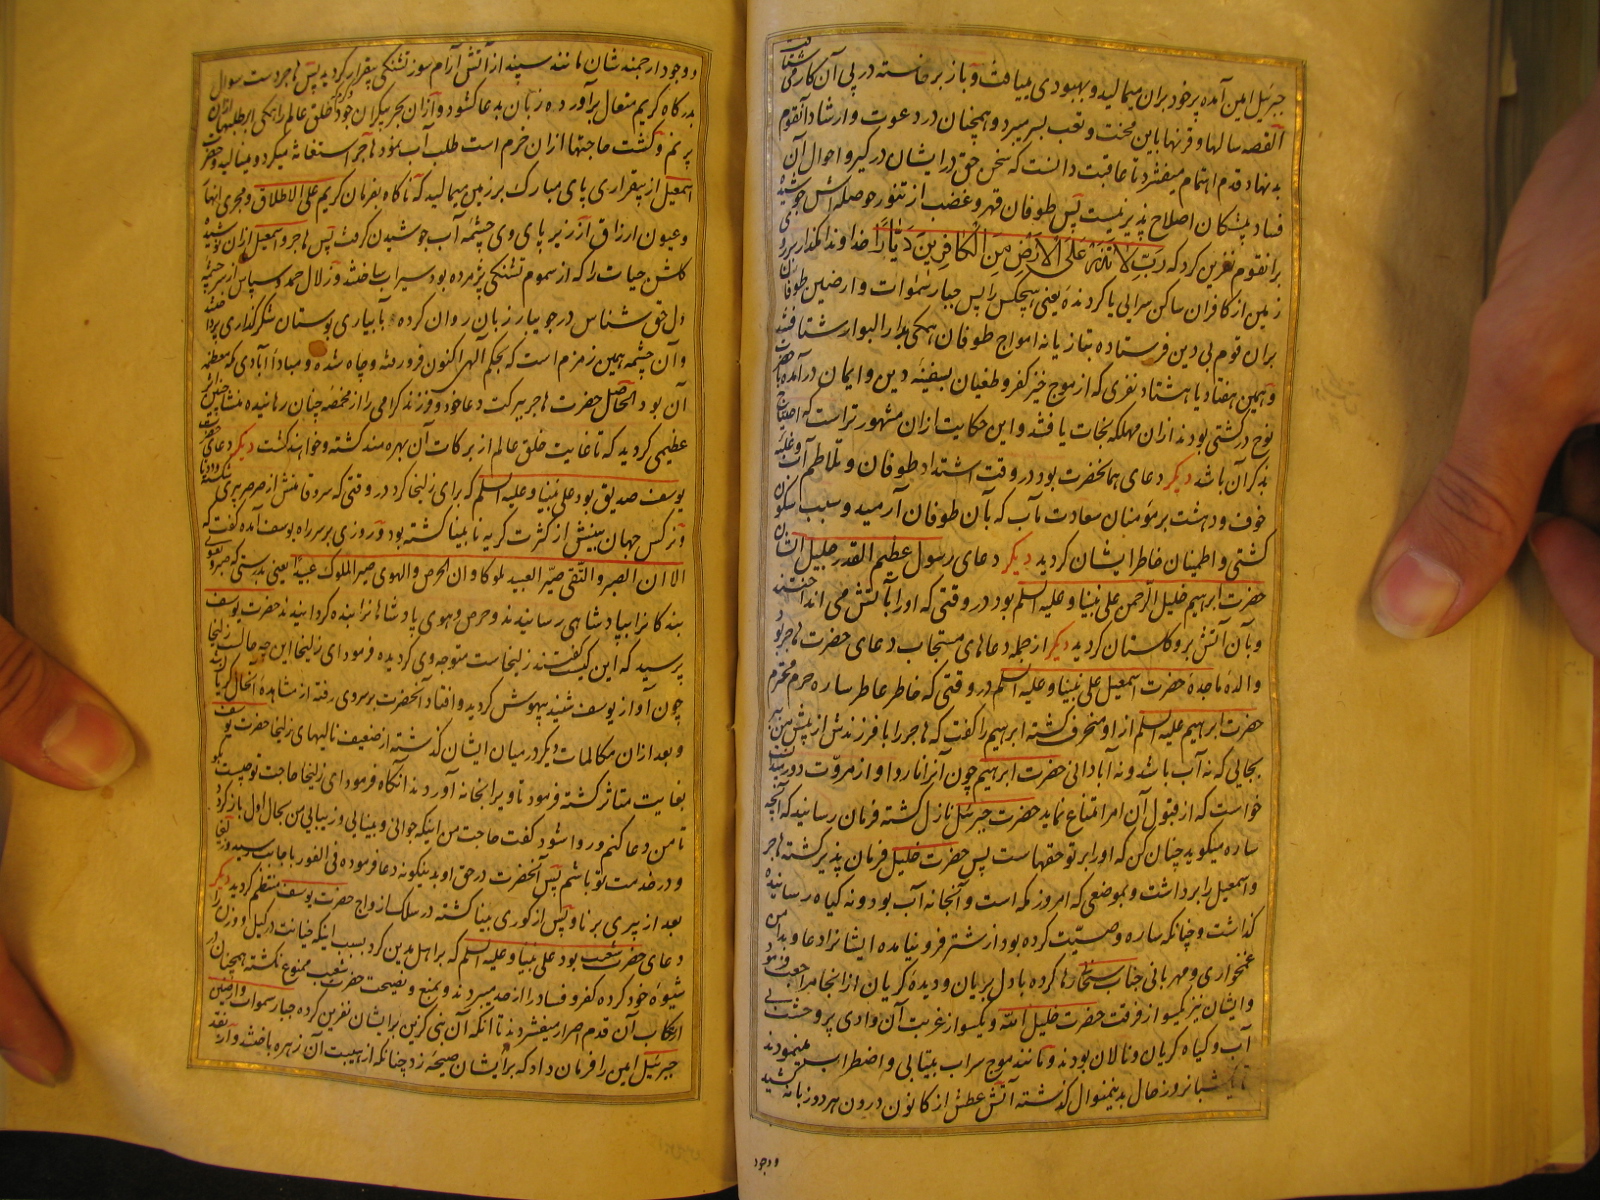 جبرئیل امین آمده پر خود بران میمالید و بهبودی مییافت و باز برخاسته در پی آن کار می شتافت
القصه سالها و قرنها باین محنت و تعب بسر میبرد و همچنان در دعوت و ارشاد آنقوم
بد نهاد قدم اهتمام میفشرد تا عاقبت دانست که سخن حق در ایشان در نگیرد و احوال آن
فساد پیشگان اصلاح پذیر نیست پس طوفان قهر و غضب از تنور حوصله اش جوشیده
برانقوم نفرین کرد که رَبِّ لَا تَذَرْ عَلَی الْاَرْضِ مِنَ الْکَافِرِینَ دَیَّارًا خداوندا مگذار بر روی
زمین از کافران ساکن سرایی یا گردنده یعنی هیچکس را پس جبار سموات و ارضین طوفان
بران قوم بی دین فرستاده بتازیانه امواج طوفان همگی بدار البوار شتافتند
و همین هفتاد یا هشتاد نفری که از موج خیز کفر و طغیان بسفینه دین و ایمان درآمده با حضرت
نوح در کشتی بودند ازان مهلکه نجات یافتند و این حکایت ازان مشهورتر است که احتیاج
بذکر آن باشد دیگر دعای همانحضرت بود در وقت اشتداد طوفان و تلاطم آب و غلبه
خوف و دهشت بر مؤمنان سعادت مآب که بآن طوفان آرمید و سبب سکون
کشتی و اطمینان خاطر ایشان گردید دیگر دعای رسول عظیم القدر جلیل الشان
حضرت ابرهیم خلیل الرحمن علی نبینا و علیه السلم بود در وقتی که او را بآتش می انداختند
و بآن آتش برو گلستان گردید دیگر از جمله دعاهای مستجاب دعای حضرت هاجر بود
والده ماجده حضرت اسمعیل علی نبینا و علیه السلم در وقتی که خاطر عاطر ساره حرم محترم
حضرت ابرهیم علیه السلم از او منحرف گشته ابرهیم را گفت که هاجر را با فرزندش از پیش من ببر
بجایی که نه آب باشد و نه آبادانی حضرت ابرهیم چون آنرا ناروا و از مروت دور میدانست
خواست که از قبول آن امر امتناع نماید حضرت جبرئیل نازل گشته فرمان رسانید که آنچه
ساره میگوید چنان کن که او را بر تو حقهاست پس حضرت خلیل فرمان پذیر گشته هاجر
و اسمعیل را برداشت و بموضعی که امروز مکه است و آنجا نه آب بود و نه گیاه رسانیده
گذاشت و چنانکه ساره وصیت کرده بود از شتر فرو نیامده ایشانرا دعا و بدامن
غمخواری و مهربانی جناب سبحان رها کرده با دل بریان و دیده گریان از انجا مراجعت فرمود
و ایشان نیز یکسو از فرقت حضرت خلیل الله و یکسو از غربت آن وادی پر وحشت بی
آب و گیاه گریان و نالان بودند و مانند موج سراب بیتابی و اضطراب مینمودند
تا یکشبانروز حال بدینمنوال گذشته آتش عطش از کانون درون هر دو زبانه کشید
و وجود
و وجود ارجمندشان مانند سپند از آتش آرام سوز تشنگی بیقرار گردید پس هاجر دست سوال
بدرگاه کریم متعال برآورده زبان بدعا گشود و ازان بحر بیکران جود که خلق عالم را همگی ابر طلبها ازان
پر نم و کشت حاجتها ازان خرم است طلب آب نمود هاجر استغاثه میکرد و مینالید و حضرت
اسمعیل از بیقراری پای مبارک بر زمین میمالید که ناگاه بفرمان کریم علی الاطلاق و مجری انهار
و عیون ارزاق از زیر پای وی چشمه آب جوشیدن گرفت پس هاجر و اسمعیل ازان نوشیده
گلشن حیات را که از سموم تشنگی پژمرده بود سیراب ساختند و زلال حمد و سپاس از سرچشمه
دل حق شناس در جویبار زبان روان کرده بآبیاری بوستان شکرگذاری پرداختند
و آن چشمه همین زمزم است که بحکم الهی اکنون فرو رفته و چاه شده و مبدأ آبادی مکه معظمه
آن بود الحاصل حضرت هاجر ببرکت دعا خود و فرزند گرامی را از مخمصه چنان رهانیده منشا خیر
عظیمی گردید که تا غایت خلق عالم از برکات آن بهره مند گشته و خواهند گشت دیگر دعای حضرت
یوسف صدیق بود علی نبینا و علیه السلم که برای زلیخا کرد در وقتی که سرو قامتش از صرصر پیری
و نرگس جهان بینش از کثرت گریه نابینا گشته بود و روزی بر سر راه یوسف آمده گفت که
الا ان الصبر و التقی صیّر العبید ملوکا و ان الحرص و الهوی صیر الملوک عبیدا یعنی بدرستی که صبر و تقوی
بندگانرا بپادشاهی رسانیدند و حرص و هوی پادشاهانرا بنده گردانیدند حضرت یوسف
پرسید که این کیست گفتند زلیخاست متوجه وی گردیده فرمود ای زلیخا این چه حالست زلیخا
چون آواز یوسف شنید بیهوش گردید و افتاد آنحضرت بر سر وی رفته از مشاهده آنحال گریان شد
و بعد ازان مکالمات دیگر در میان ایشان گذشته از ضعیف نالیهای زلیخا حضرت یوسف
بغایت متاثر گشته فرمود تا ویرا بخانه آوردند آنگاه فرمود ای زلیخا حاجت تو چیست بگو
تا من دعا کنم و روا شود گفت حاجت من اینکه جوانی و بینایی و زیبایی من بحال اول باز گردد
و در خدمت تو باشم پس آنحضرت در حق او بدینگونه دعا فرموده فی الفور باجابت رسید و زلیخا
بعد از پیری برنا و پس از کوری بینا گشته در سلک ازواج حضرت یوسف منتظم گردید دیگر
دعای حضرت شعیب بود علی نبینا و علیه السلم که بر اهل مدین کرد بسبب اینکه خیانت در کیل و وزن را
شیوه خود کرده کفر و فساد را از حد میبردند و بمنع و نصیحت حضرت شعیب ممنوع نگشته همچنان در
ارتکاب آن قدم اصرار میفشردند تا انکه آن نبی گزین بر ایشان نفرین کرده جبار سموات و ارضین
جبرئیل امین را فرمان داد که بر ایشان صیحه زد چنانکه از هیبت آن زهره باختند و از نقد